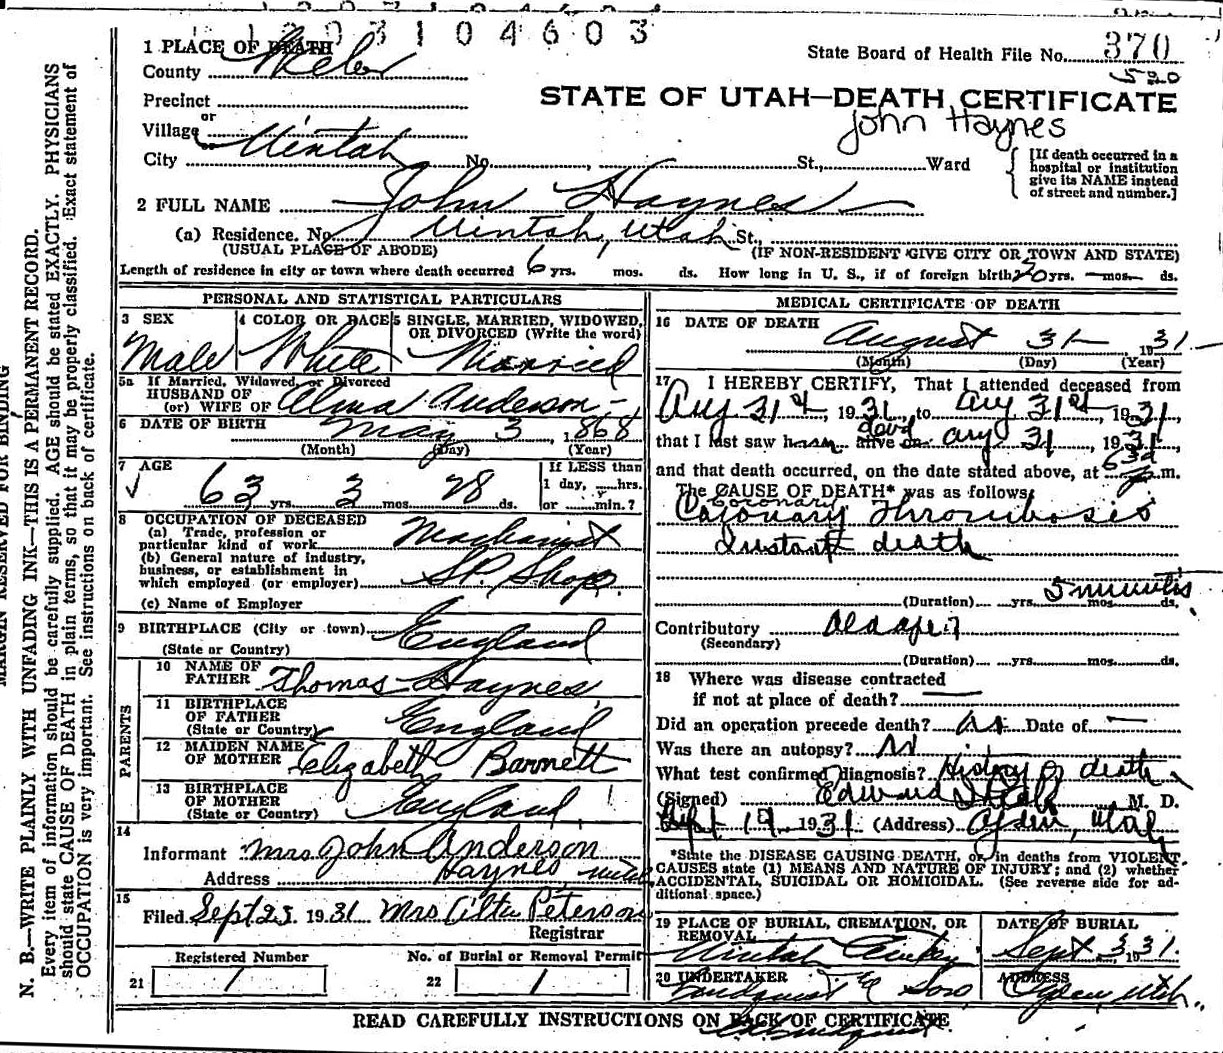 1 2 0 3 1 0 4 6 0 3
1 PLACE OF DEATH
State Board of Health File No. 370
County Weber
520
Precinct
STATE OF UTAH—DEATH CERTIFICATE
or
John Haynes
Village
Uintah
City No. St., Ward
[If death occurred in a hospital or institution give its NAME instead of street and number.]
2 FULL NAME John Haynes
(a) Residence. No. Uintah, Utah St.,
(USUAL PLACE OF ABODE) (IF NON-RESIDENT GIVE CITY OR TOWN AND STATE)
Length of residence in city or town where death occurred 6 yrs. mos. ds. How long in U. S., if of foreign birth 20 yrs. — mos. — ds.
PERSONAL AND STATISTICAL PARTICULARS
3 SEX 4 COLOR OR RACE 5 SINGLE, MARRIED, WIDOWED, OR DIVORCED (Write the word)
Male White Married
5a If Married, Widowed, or Divorced
HUSBAND OF
(or) WIFE OF Alma Anderson
6 DATE OF BIRTH May 3, 1868
(Month) (Day) (Year)
7 AGE If LESS than
63 yrs. 3 mos. 28 ds. 1 day, hrs.
or min.?
8 OCCUPATION OF DECEASED
(a) Trade, profession or
particular kind of work Machinist
(b) General nature of industry,
business, or establishment in
which employed (or employer) S.P. Shops
(c) Name of Employer
9 BIRTHPLACE (City or town)
(State or Country) England
PARENTS
10 NAME OF FATHER Thomas Haynes
11 BIRTHPLACE OF FATHER
(State or Country) England
12 MAIDEN NAME OF MOTHER Elizabeth Barnett
13 BIRTHPLACE OF MOTHER
(State or Country) England
14
Informant Mrs John Anderson
Address Haynes
15
Filed Sept 23 1931 Mrs Peterson
Registrar
Registered Number No. of Burial or Removal Permit
21 1 22 1
MEDICAL CERTIFICATE OF DEATH
16 DATE OF DEATH
August 31 1931
(Month) (Day) (Year)
17 I HEREBY CERTIFY, That I attended deceased from
Aug 31st, 1931, to Aug 31st, 1931,
dead
that I last saw him alive on Aug 31, 1931,
and that death occurred, on the date stated above, at 630 p.m.
The CAUSE OF DEATH* was as follows:
Coronary
Coronary Thrombosis
Instant death
5 minutes
(Duration) yrs. mos. ds.
Contributory Old age?
(Secondary)
(Duration) yrs. mos. ds.
18 Where was disease contracted
if not at place of death?
Did an operation precede death? no Date of —
Was there an autopsy? No
What test confirmed diagnosis? History of death
(Signed) Edward M. D.
Sept 19 1931 (Address) Ogden, Utah
*State the DISEASE CAUSING DEATH, or, in deaths from VIOLENT
CAUSES state (1) MEANS AND NATURE OF INJURY; and (2) whether
ACCIDENTAL, SUICIDAL OR HOMICIDAL. (See reverse side for ad-
ditional space.)
19 PLACE OF BURIAL, CREMATION, OR REMOVAL DATE OF BURIAL
Uintah Sept 3 1931.
20 UNDERTAKER ADDRESS
Lindquist & Sons Ogden, Utah.
READ CAREFULLY INSTRUCTIONS ON BACK OF CERTIFICATE
MARGIN RESERVED FOR BINDING
N. B.—WRITE PLAINLY WITH UNFADING INK—THIS IS A PERMANENT RECORD.
Every item of information should be carefully supplied. AGE should be stated EXACTLY. PHYSICIANS
should state CAUSE OF DEATH in plain terms, so that it may be properly classified. Exact statement of
OCCUPATION is very important. See instructions on back of certificate.